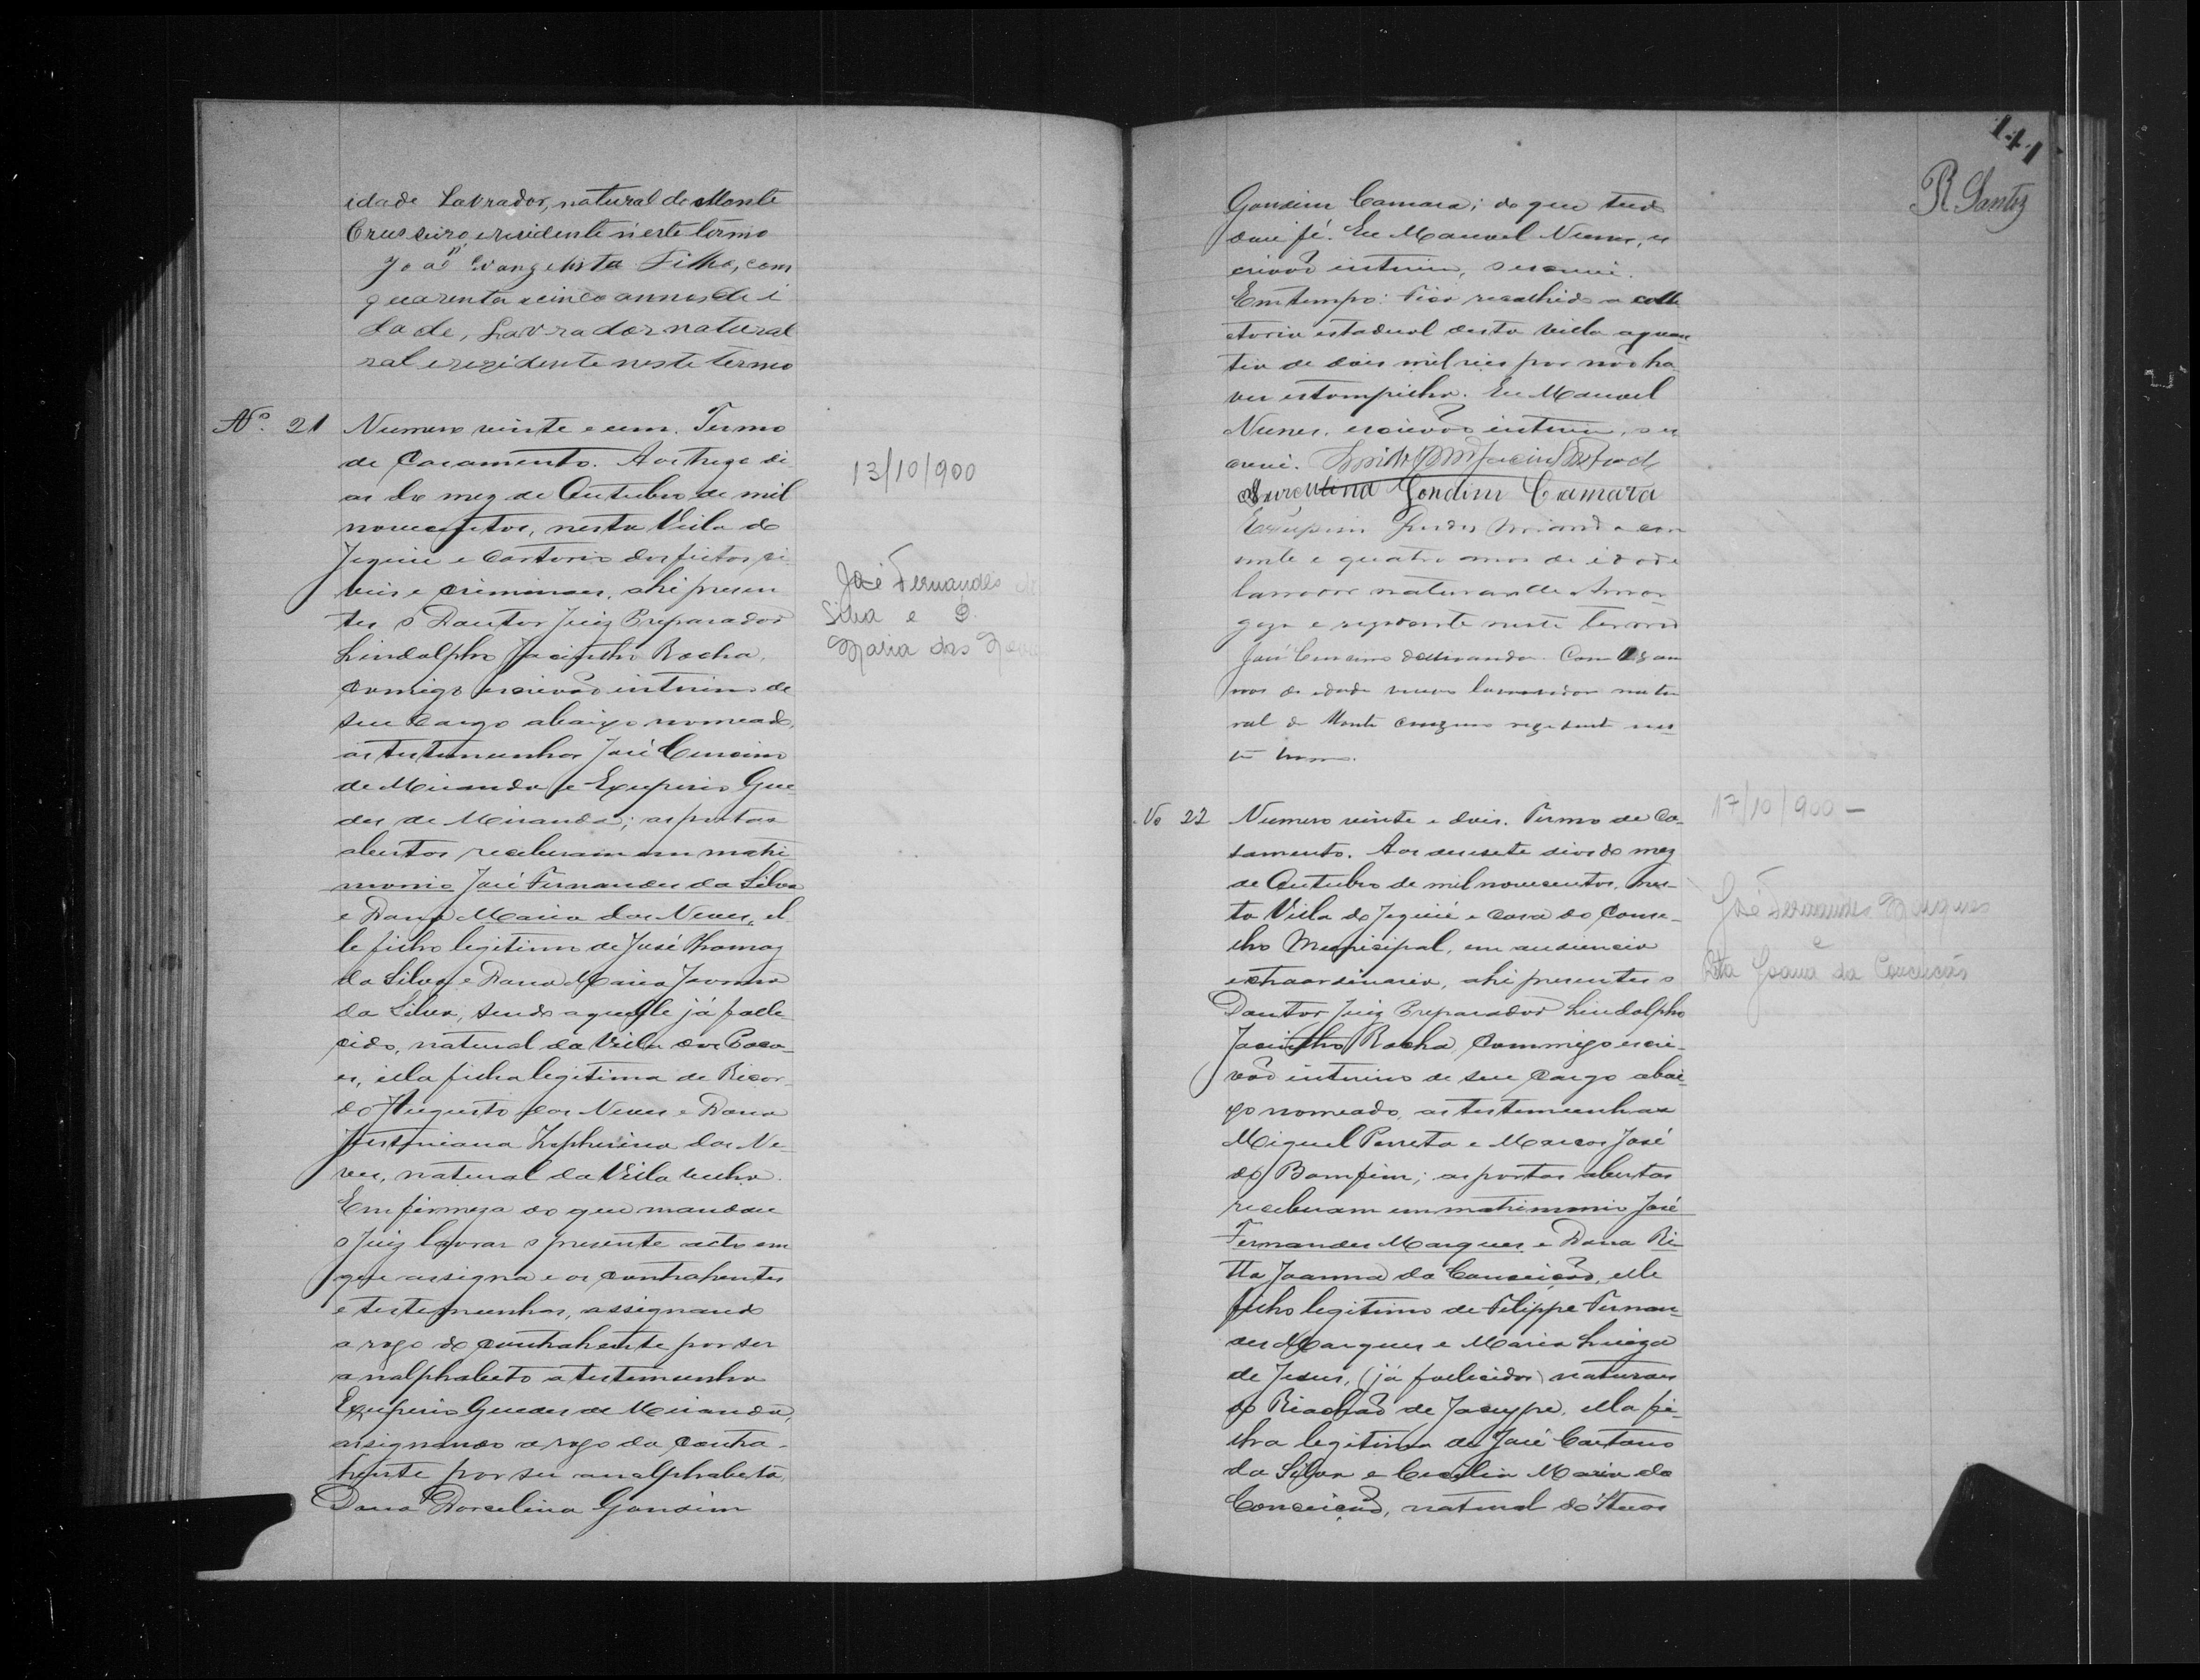 idade Lavrador, natural de Monte
Crusseiro e residente n'este termo
João Evangelista Filho, com
quarenta e cinco annos de i
dade, Lavrador natural
ral e rezidente neste termo
Nº 21 Numero vinte e um. Termo
de Casamento. Aos treze di
as do mez de Outubro de mil
novecentos, nesta Villa de
Jequié e Cartorio dos feitos ci
veis e criminaes, ahi presen
tes o Doutor Juiz Preparador
Lindolpho Jacintho Rocha,
commigo escrivão interino de
seu cargo abaixo nomeado,
as testemunhas José Cursino
de Miranda e Exuperio Gue
des de Miranda; as portas
abertas receberam em matri
monio José Fernandes da Silva
e Dona Maria das Neves, el
le filho legitimo de José Thomaz
da Silva e Dona Maria Joanna
da Silva, sendo aquelle já falle
cido, natural da Villa dos Poço
es, ella filha legitima de Ricar
do Augusto das Neves e Dona
Justiniana Zepherina das Ne
ves, natural da Villa Velha.
Em firmeza do que mandou
o Juiz lavrar o presente acto em
que assigna e os contrahentes
e testemunhas, assignando
a rogo do contrahente por ser
analphabeto a testemunha
Exuperio Guedes de Miranda,
assignando a rogo da contra-
hente por ser analphabeta,
Dona Dorcelina Gondim
13/10/900
José Fernandes da
Silva e D.
Maria das Neves
141
R Santos
Gondim Camara; do que tudo
dou fé. Eu Manoel Nunes, es
crivão interino, o escrevi.
Em tempo: Fica recolhido a colle
ctoria estadual desta Villa a quan
tia de dois mil reis por não ha
ver estampilha. Eu Manoel
Nunes, escrivão interino, o es
crevi.
Gondim Camara
Exuperio Guedes Miranda com
vinte e quatro anos de idade
lavrador natural de Amar
goza e rezidente neste termo
José Cursino de Miranda Com
nos de idade lavrador natu
ral de Monte Cruzeiro rezidente nes
te termo.
No 22 Numero vinte e dois. Termo de Ca-
samento. Aos desesete dias do mez
de Outubro de mil novecentos, nes-
ta Villa de Jequié e casa do Conse-
lho Municipal, em audiencia
extraordinaria, ahi presentes o
Doutor Juiz Preparador Lindolpho
Jacintho Rocha, commigo escri-
vão interino de seu cargo abai
xo nomeado, as testemunhas
Miguel Perreta e Marcos José
do Bomfim; as portas abertas
receberam em matrimonio José
Fernandes Marques e Dona Ri-
tta Joanna da Conceição, elle
filho legitimo de Filippe Fernan-
des Marques e Maria Luiza
de Jesus, (já fallecidos) naturaes
do Riachão de Jacuype, ella fi-
lha legitima de José Caetano
da Silva e Cecilia Maria da
Conceição, natural de
17/10/900 —
José Fernandes Marques
e
Rita Joana da Conceicão